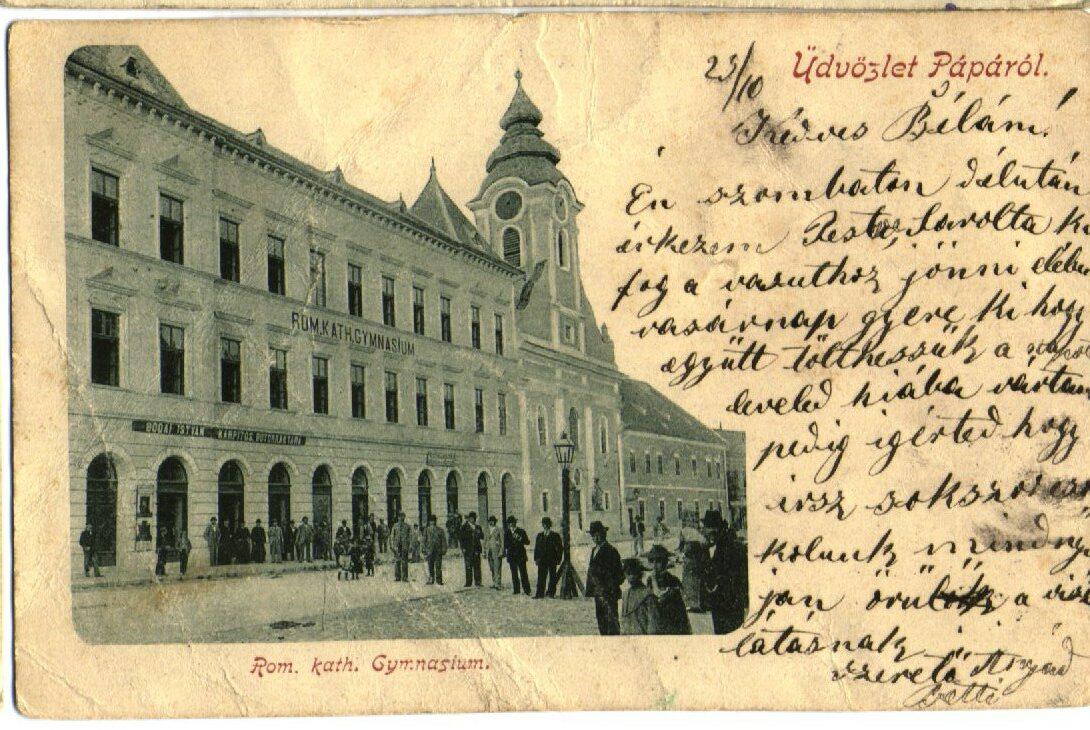 Üdvözlet Pápáról.
25/10
Kedves Bélám!
Én szombaton délután
érkezem Pestre, Sarolta ki
fog a vasuthoz jönni elébem
vasárnap gyere ki hogy
együtt tölthessük a
leveled hiába vártam
pedig igérted hogy
irsz sokszor
kolunk mindnyá
ján örülök a viszont
látásnak
szerető Anyád
Betti
ROM.KATH.GYMNASIUM
BODAI ISTVÁN
KÁRPITOS
Rom. kath. Gymnasium.